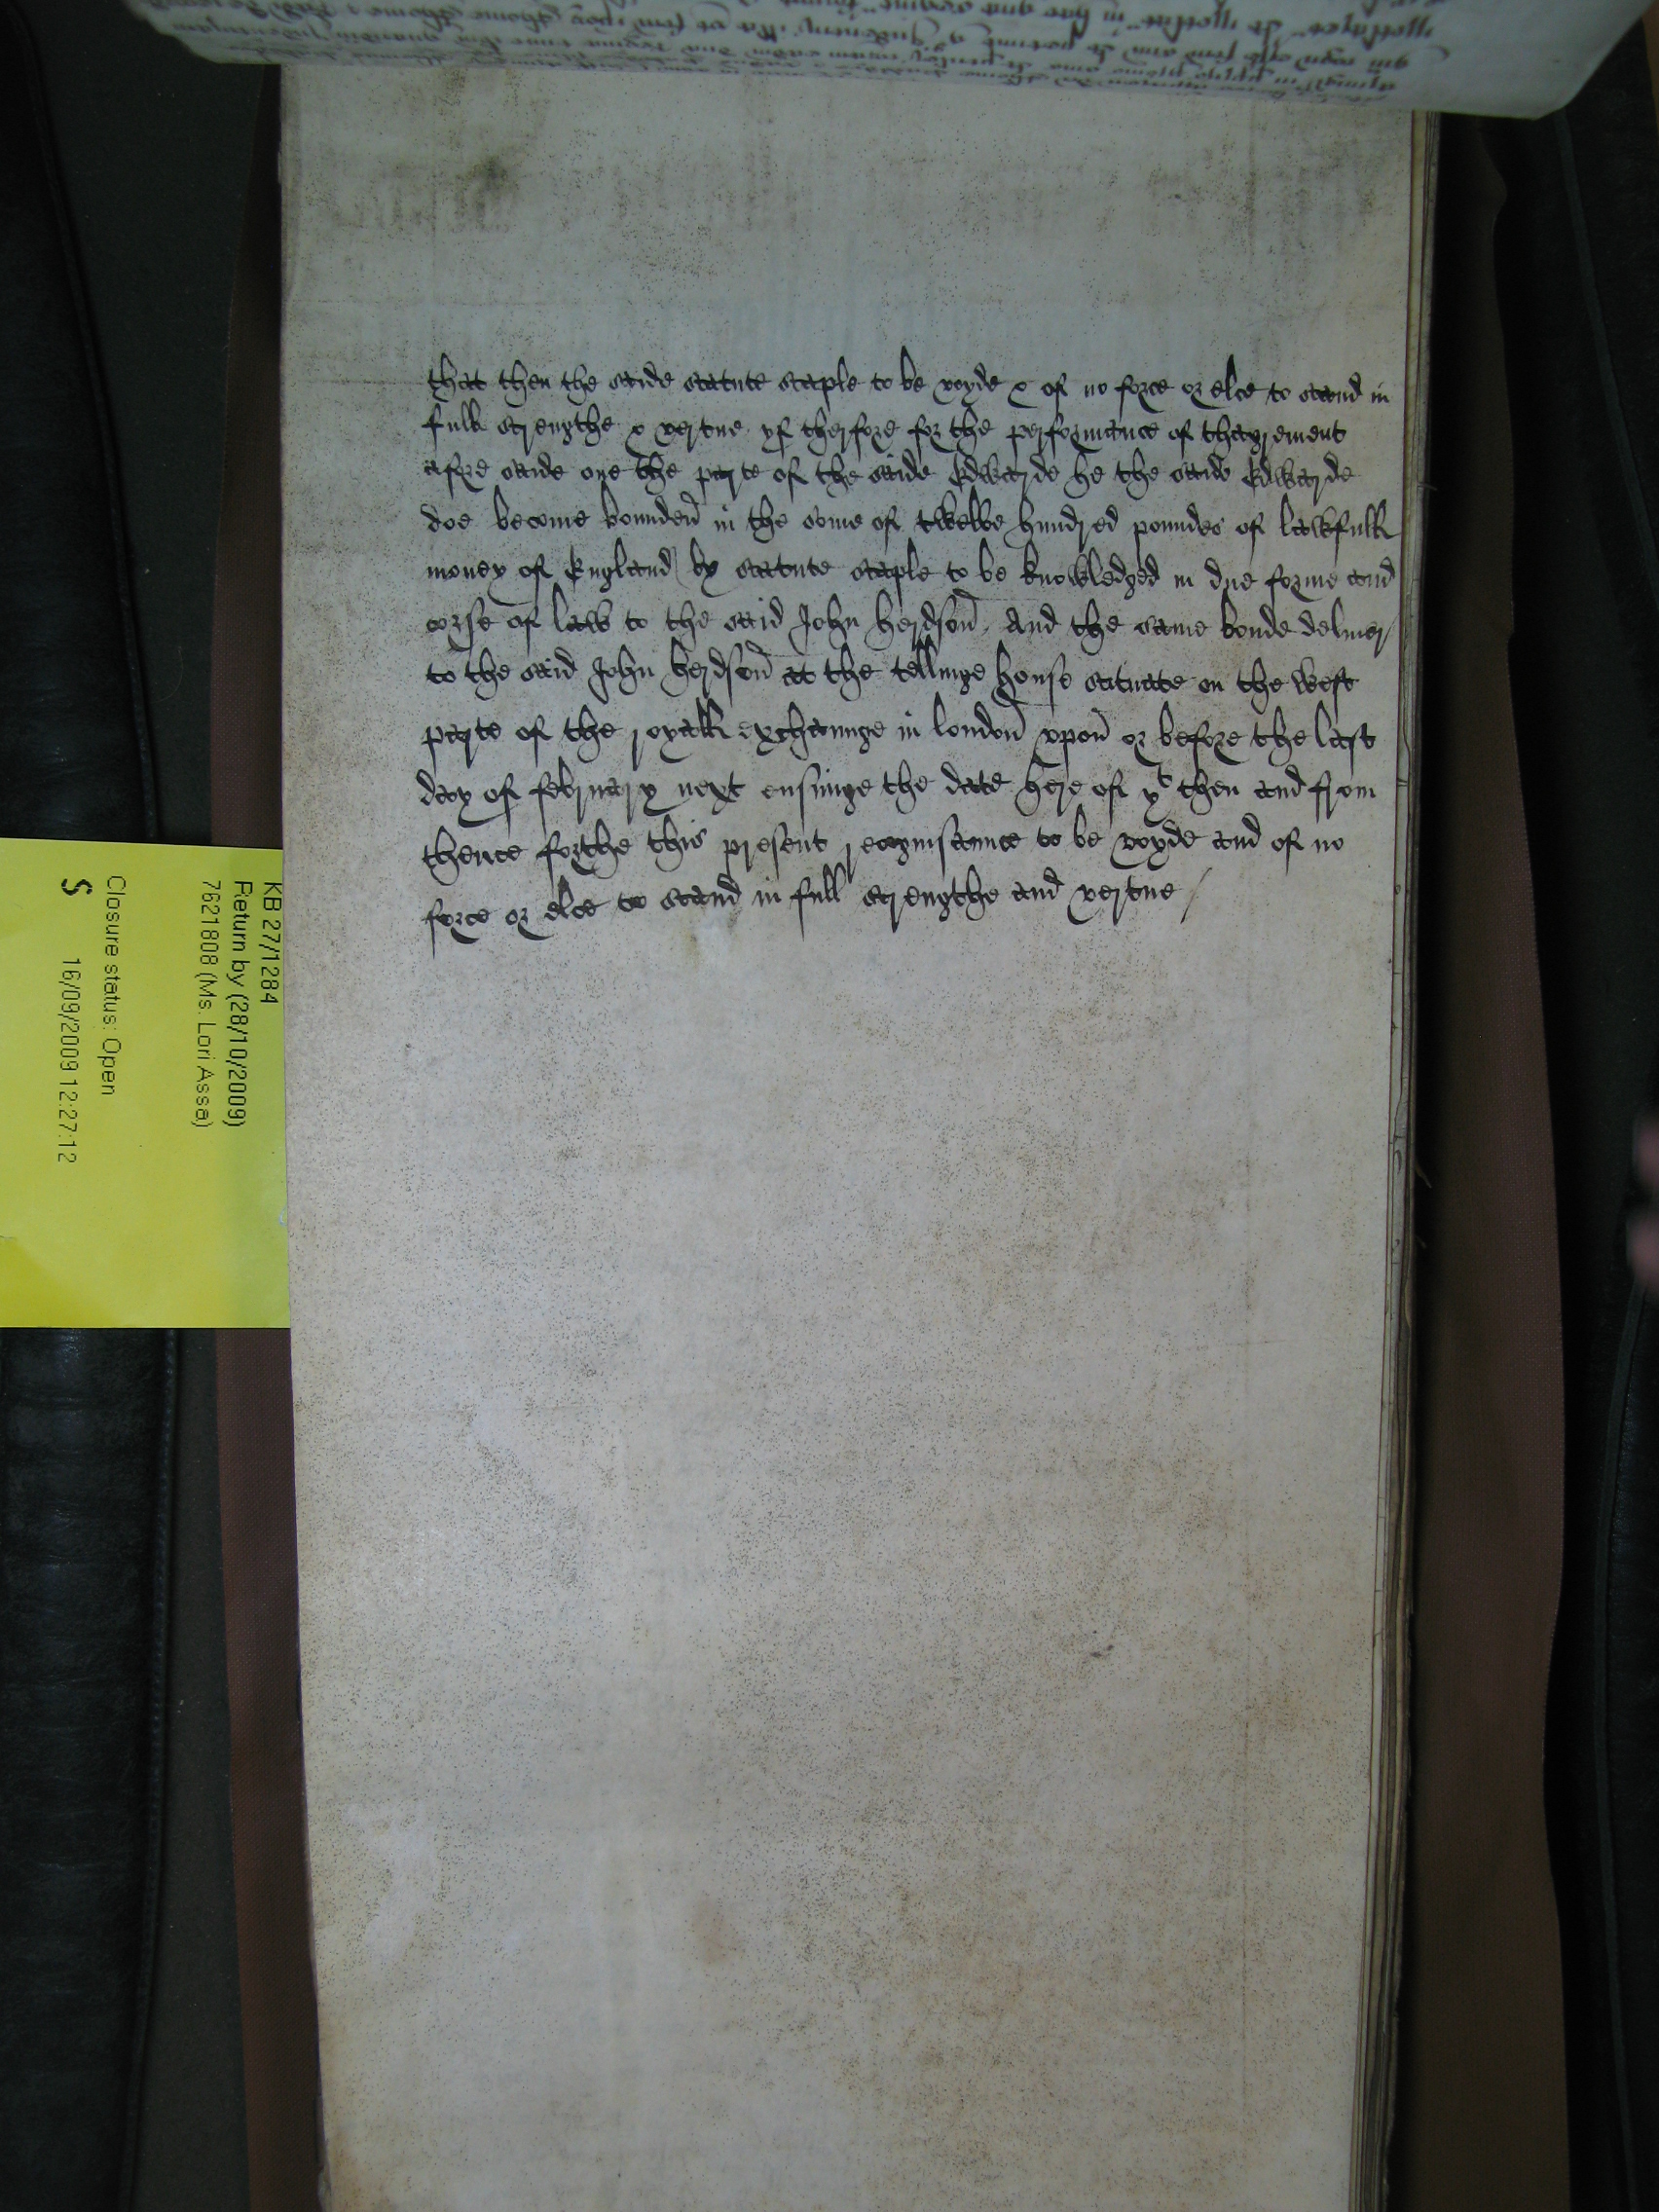 that then the saide statute staple to be voyde & of no force or elce to stand in
full strengthe & vertue yf therfore for the performance of thagrement
afore saide one the parte of the saide Edwarde he the saide Edwarde
doe become bounden in the some of twelve hundred poundes of lawfull
money of England by statute staple to be knowledged in due forme and
corse of law to the said John herdson And the same bonde deliver
to the said John herdson at the tellinge house scituate on the west
parte of the royall exchaunge in london vpon or before the last
day of february next ensuinge the date here of yt then and from
thence forthe this present recogniscance to be voyde and of no
force or elce to stand in full strengthe and vertue /
KB 27/1284
Return by (28/10/2009)
7621808 (Ms. Lori Assa)
Closure status: Open
S 16/09/2009 12:27:12